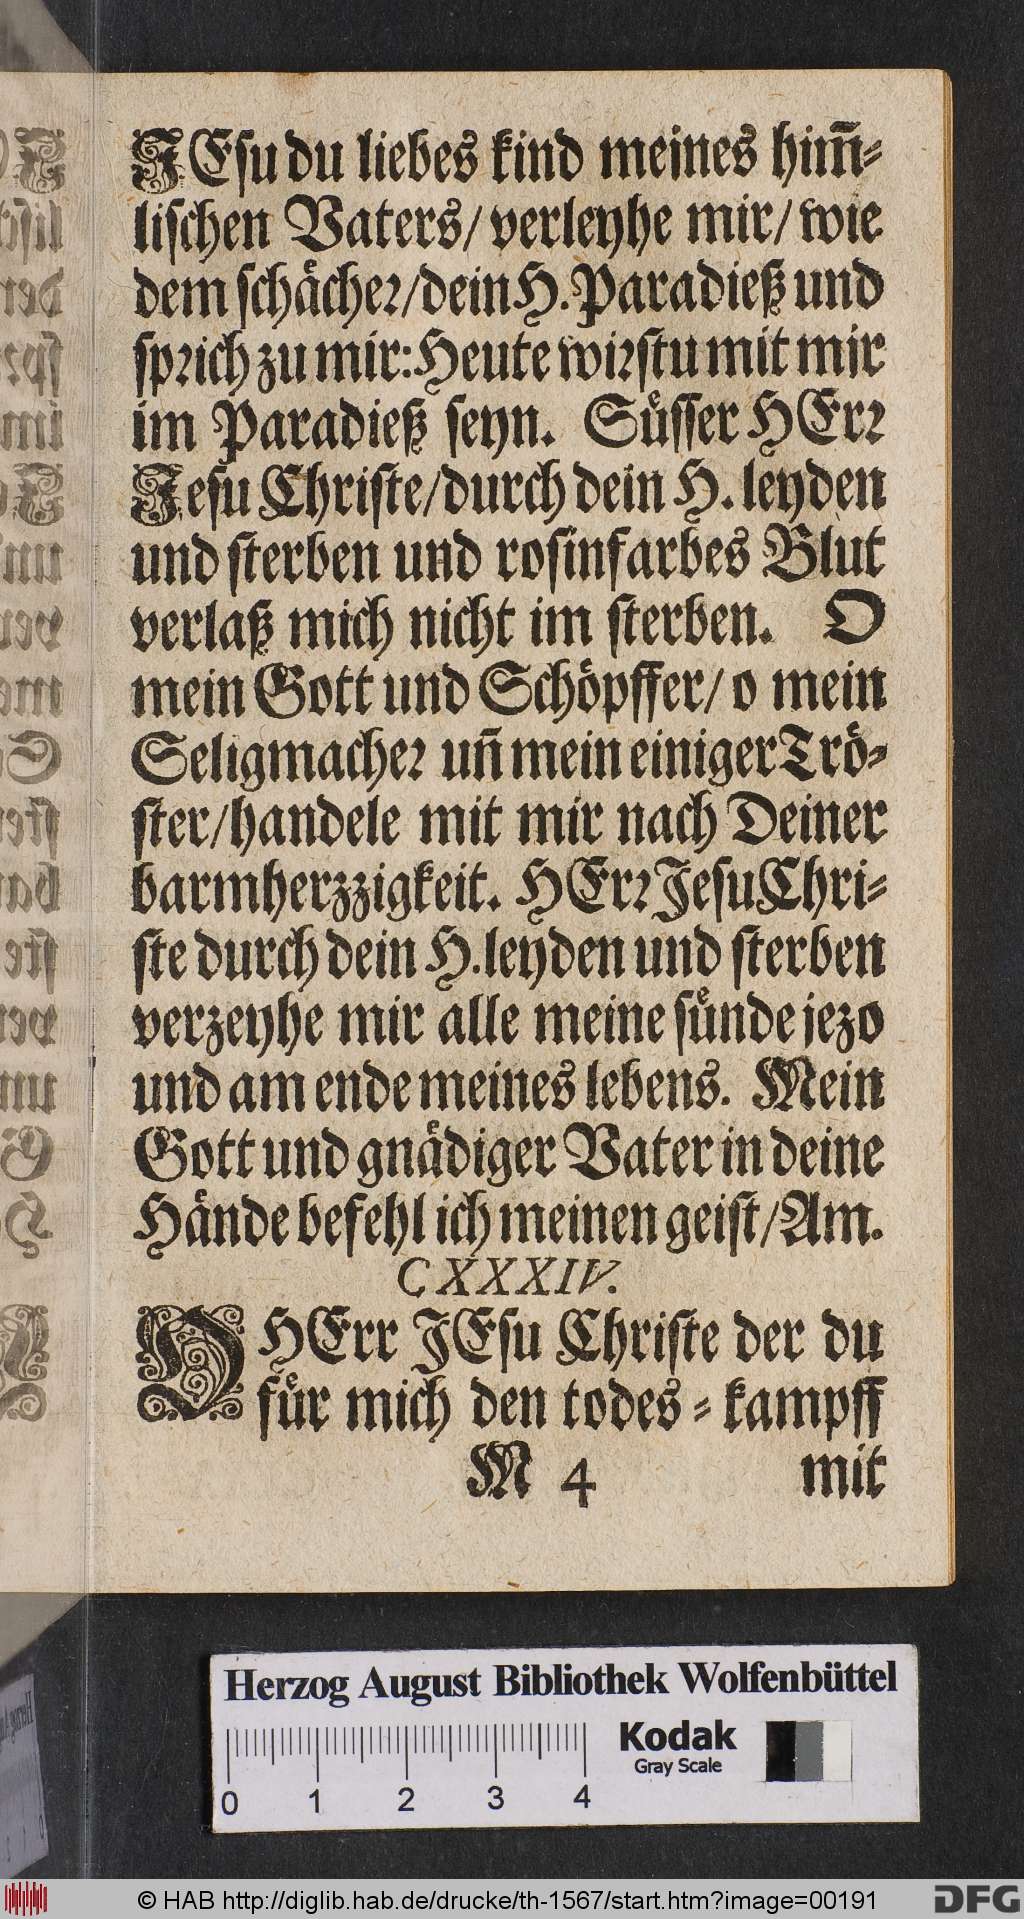 JEsu du liebes kind meines him̃-
lischen Vaters/ verleyhe mir/ wie
dem schaͤcher/dein H. Paradieß und
sprich zu mir: Heute wirstu mit mir
im Paradieß seyn. Suͤsser HErr
Jesu Christe/durch dein H. leyden
und sterben und rosinfarbes Blut
verlaß mich nicht im sterben. O
mein Gott und Schöpffer/ o mein
Seligmacher uñ mein einiger Trö-
ster/handele mit mir nach Deiner
barmherzzigkeit. HErr Jesu Chri-
ste durch dein H. leyden und sterben
verzeyhe mir alle meine suͤnde jezo
und am ende meines lebens. Mein
Gott und gnaͤdiger Vater in deine
Hände befehl ich meinen geist/Am.
CXXXIV.
O HErr JEsu Christe der du
fuͤr mich den todes-kampff
M 4 mit
Herzog August Bibliothek Wolfenbüttel
Kodak
Gray Scale
0 1 2 3 4
© HAB http://diglib.hab.de/drucke/th-1567/start.htm?image=00191
DFG